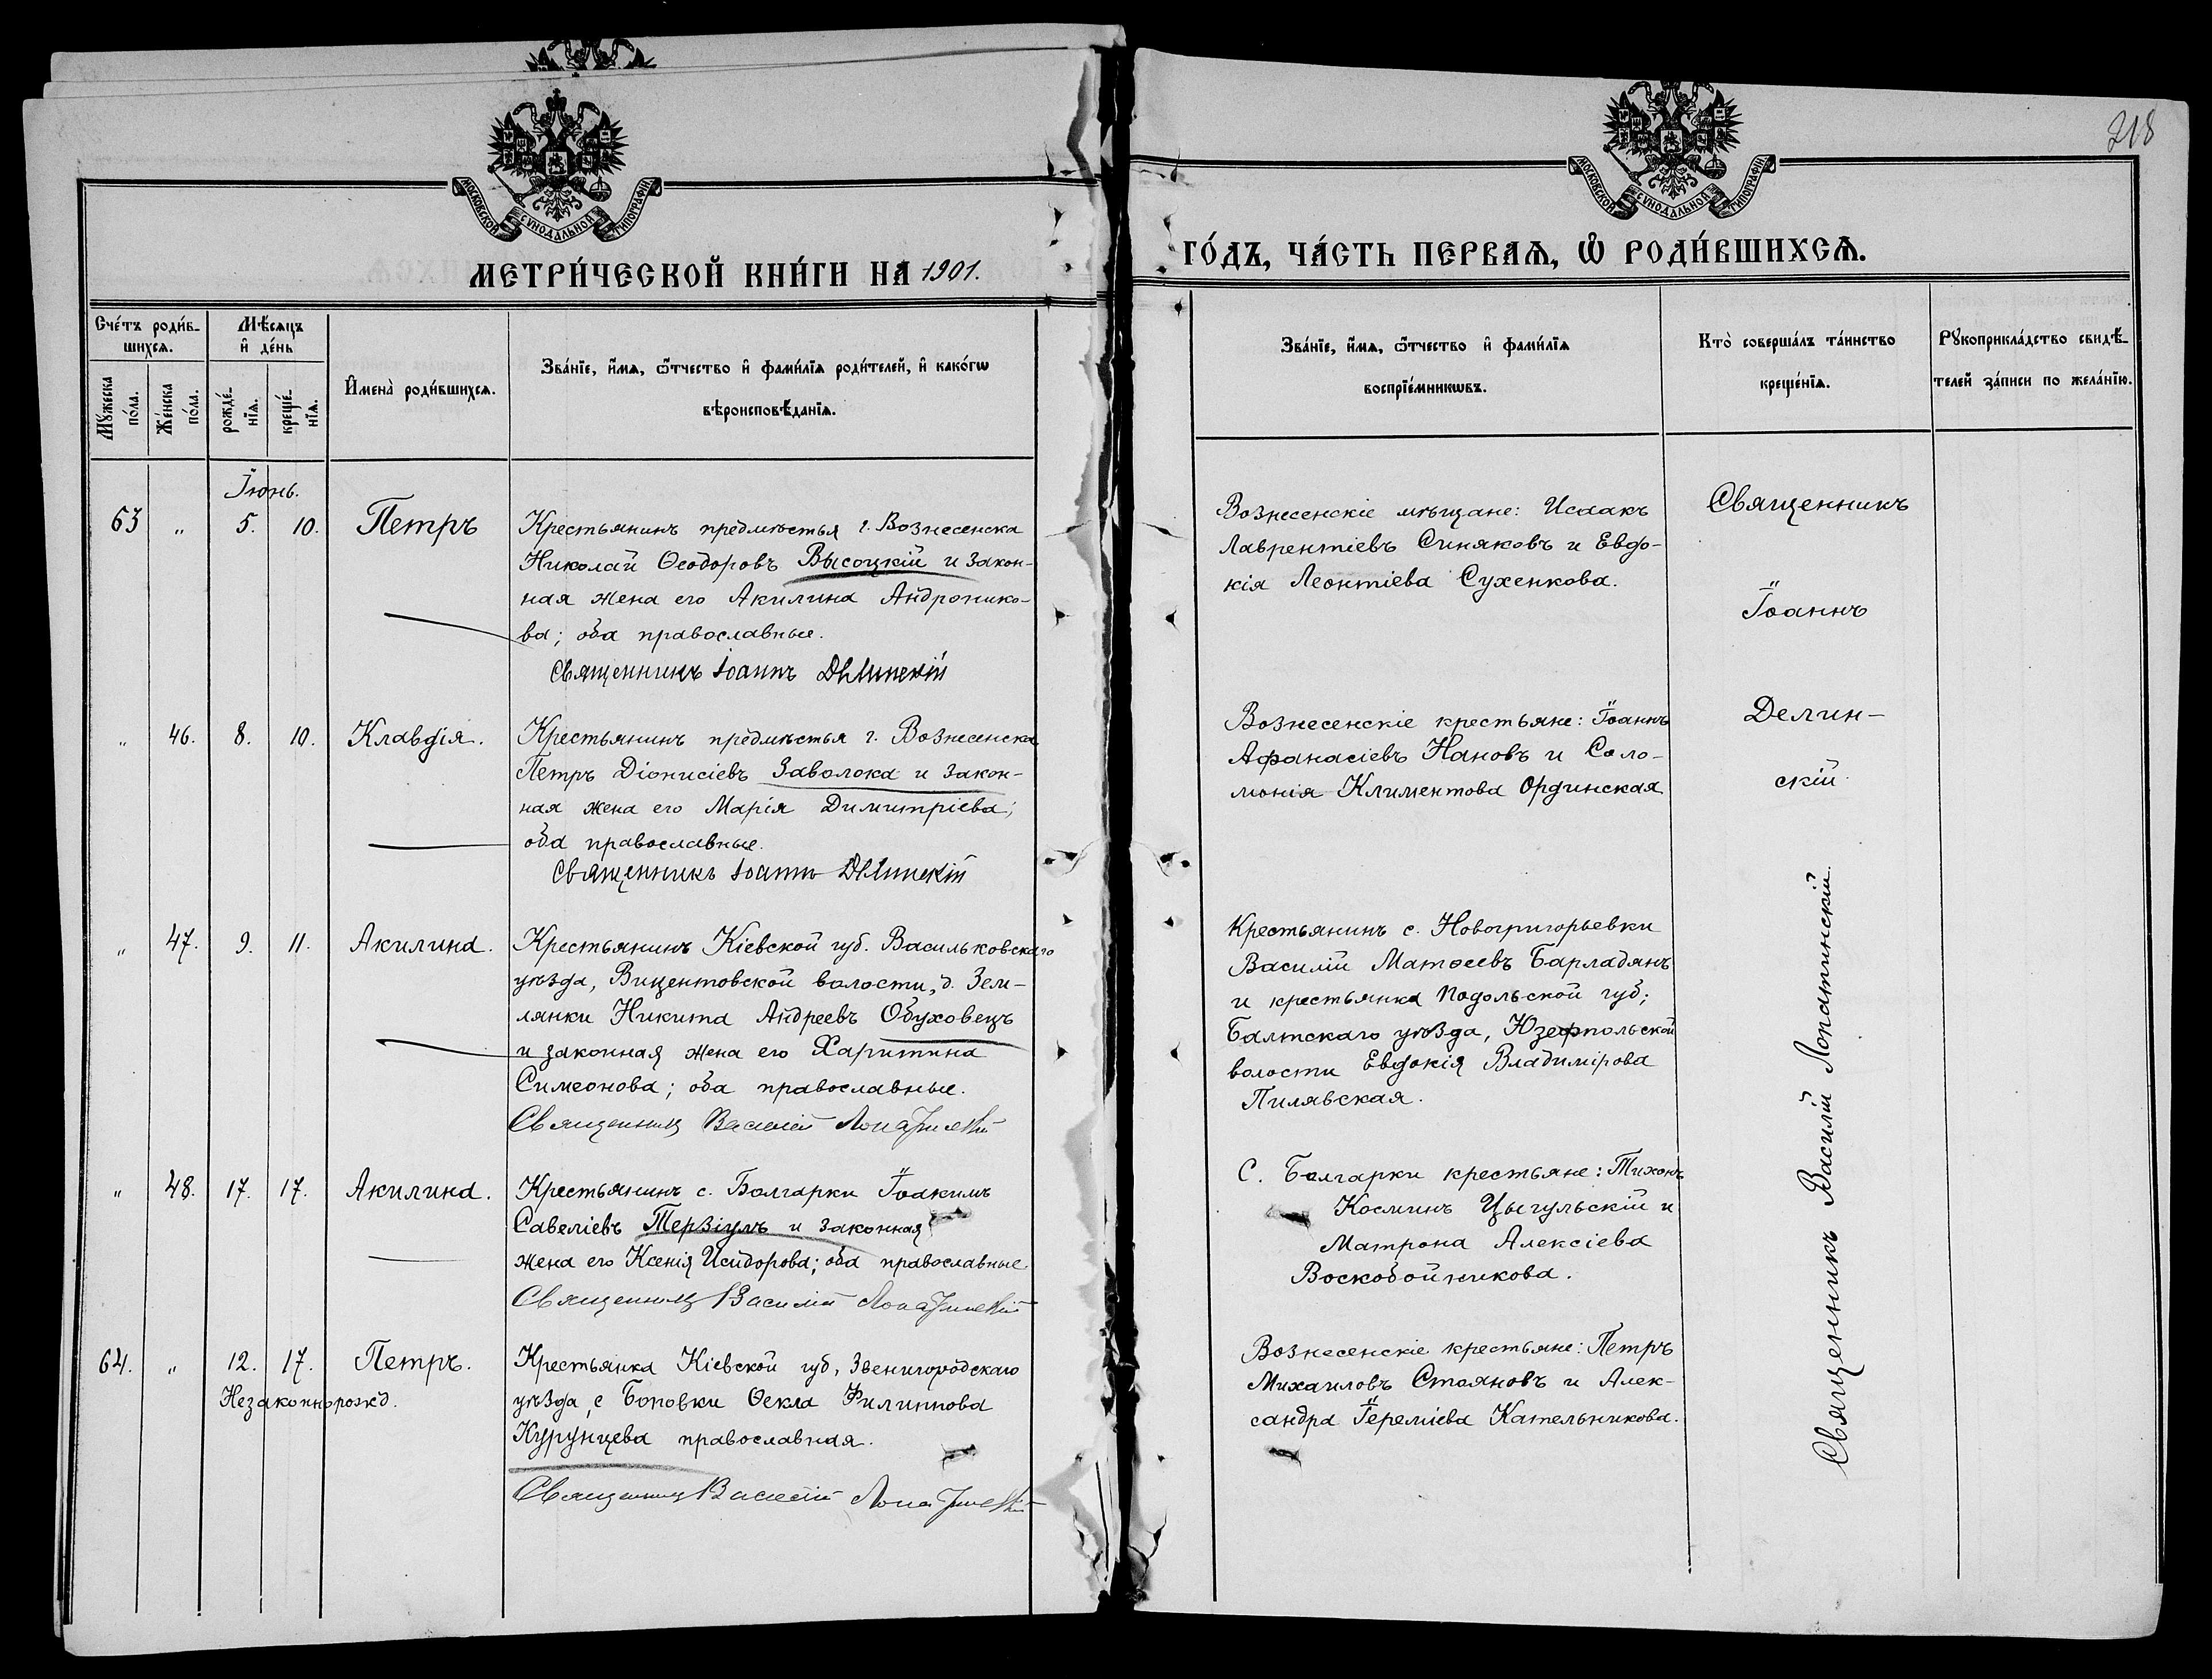 218
МОСКОВСКОЙ СѴНОДАЛЬНОЙ ТИПОГРАФІИ
МОСКОВСКОЙ СѴНОДАЛЬНОЙ ТИПОГРАФІИ
МЕТРИ́ЧЕСКОЙ КНИ́ГИ НА 1901.
ГО́ДЪ, ЧА́СТЬ ПЕРВАѦ, Ѿ РОДИ́ВШИХСѦ.
Сче́тъ роди́в-
шихсѧ.
Мꙋ́жеска по́ла.
Же́нска по́ла.
Мѣ́сѧцъ
и҆ де́нь
рожде́-
нїѧ.
креще́-
нїѧ.
И҆мена̀ роди́вшихсѧ.
Зва́нїе, и҆́мѧ, ѻ҆́тчество и҆ фами́лїѧ роди́телей, и҆ како́гѡ
вѣроисповѣ́данїѧ.
Зва́нїе, и҆́мѧ, ѻ҆́тчество и҆ фами́лїѧ
воспрїе́мникѡвъ.
Кто̀ соверша́лъ та́инство
креще́нїѧ.
Рꙋкоприкла́дство свидѣ́-
телей за́писи по жела́нїю.
Іюнь.
63 " 5. 10. Петръ
Крестьянинъ предмѣстья г. Вознесенска
Николай Ѳеодоровъ Высоцкій и закон-
ная жена его Акилина Андронико-
ва; оба православные.
Священникъ Іоаннъ Дѣлинскій
Вознесенскіе мѣщане: Исаакъ
Лаврентіевъ Синяковъ и Евдо-
кія Леонтіева Сухенкова.
Священникъ
Іоаннъ
Делин-
скій
" 46. 8. 10. Клавдія.
Крестьянинъ предмѣстья г. Вознесенска
Петръ Діонисіевъ Заволока и закон-
ная жена его Марія Димитріева;
оба православные.
Священникъ Іоаннъ Дѣлинскій
Вознесенскіе крестьяне: Іоаннъ
Афанасіевъ Нановъ и Соло-
монія Климентова Ордынская
" 47. 9. 11. Акилина.
Крестьянинъ Кіевской губ. Васильковскаго
уѣзда, Вицентовской волости, д. Зем-
лянки Никита Андреевъ Обуховецъ
и законная жена его Харитина
Симеонова; оба православные.
Священникъ Василій Лопатинскій
Крестьянинъ с. Новогригорьевки
Василій Матѳеевъ Барладянъ
и крестьянка Подольской губ;
Балтскаго уѣзда, Юзефпольской
волости Евдокія Владимірова
Пилявская.
Священникъ Василій Лопатинскій.
" 48. 17. 17. Акилина.
Крестьянинъ с. Болгарки Іоакимъ
Савеліевъ Терзіулъ и законная
жена его Ксенія Исидорова; оба православные.
Священникъ Василій Лопатинскій
С. Болгарки крестьяне: Тихонъ
Косминъ Цыгульскій и
Матрона Алексіева
Воскобойникова.
64. " 12. 17. Петръ.
Незаконнорожд.
Крестьянка Кіевской губ, Звенигородскаго
уѣзда, с Боповки Ѳекла Филиппова
Курунцева православная.
Священникъ Василій Лопатинскій
Вознесенскіе крестьяне: Петръ
Михаиловъ Стояновъ и Алек-
сандра Іереміева Кательникова.